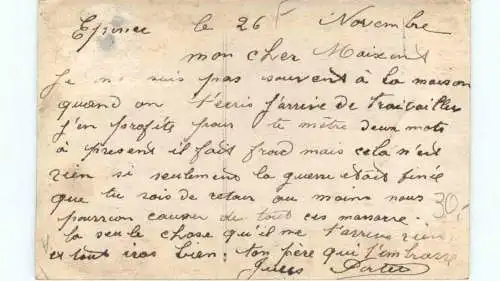 le 26 Novembre
mon cher Maixent
Je ne suis pas souvent à la maison
quand on t'écris j'arrive de travailler
j'en profite pour te mètre deux mots
à present il fait froid mais cela n'est
rien si seulement la guerre etait finie
que tu sois de retour au moins nous
pourrion causer de tout ces
30,-
la seule chose qu'il me t'arrive rien
et tout iras bien: ton père qui t'embrasse
Jules